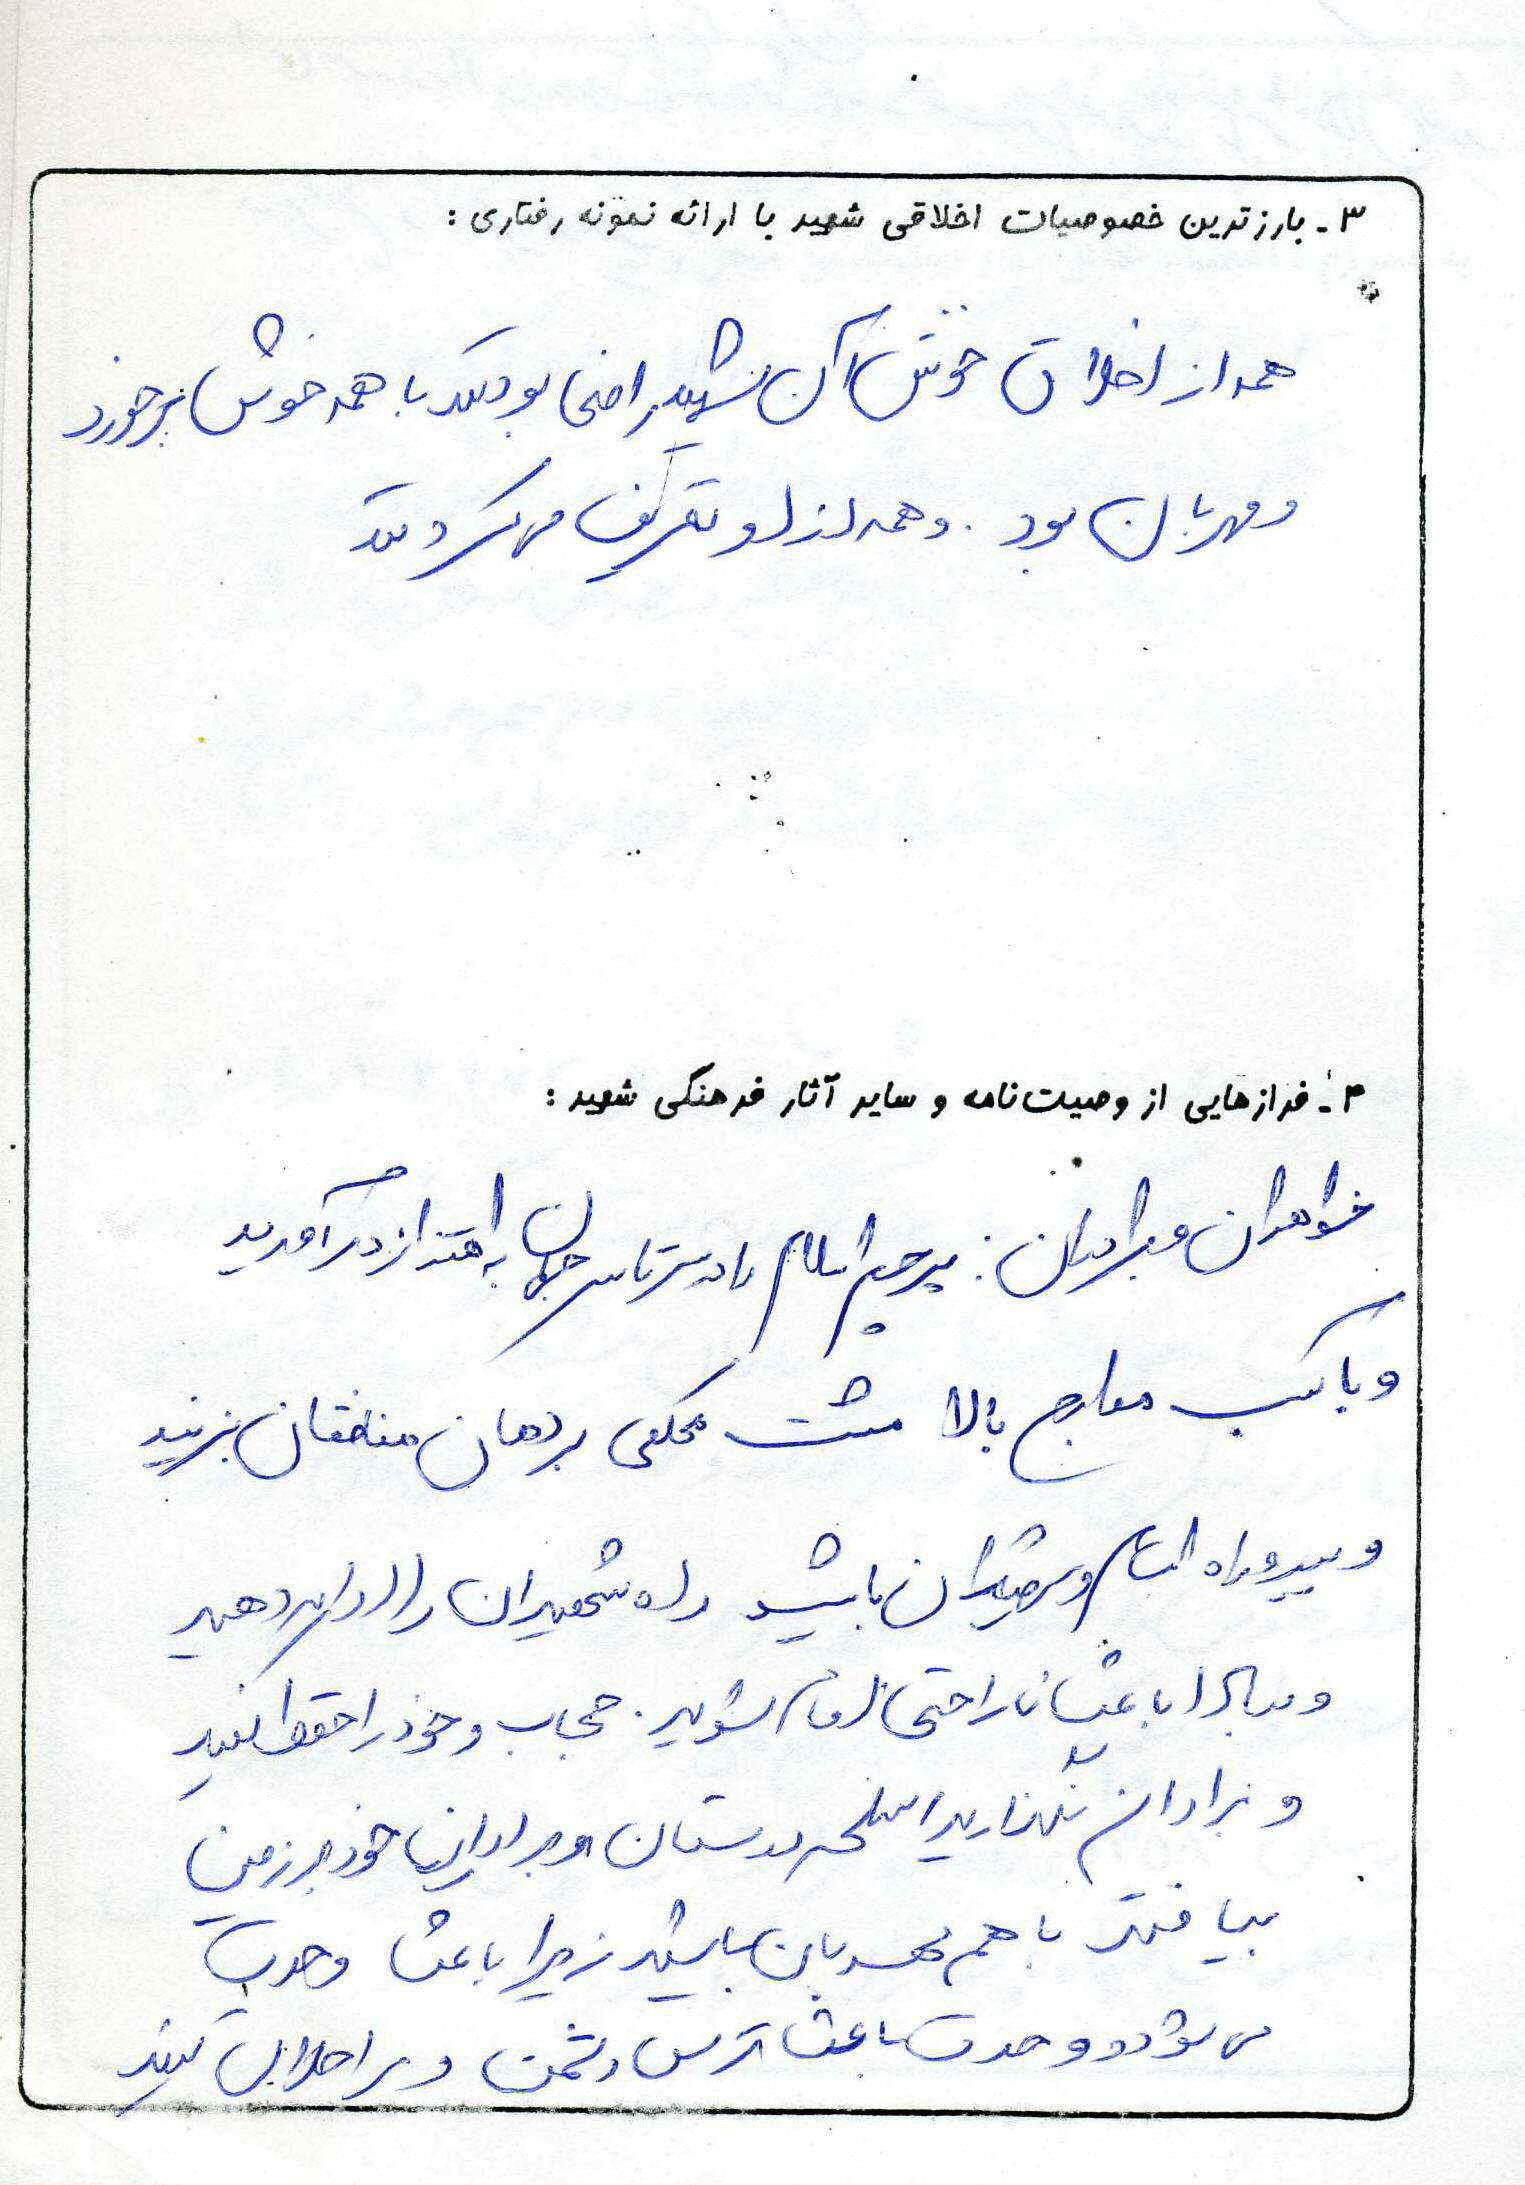 ۳ـ بارزترین خصوصیات اخلاقی شهید با ارائه نمونه رفتاری :
همه از اخلاق خوش آن شهید راضی بودند با همه خوش برخورد
و مهربان بود . و همه از او تعریف می کردند
۴ـ فرازهایی از وصیت‌نامه و سایر آثار فرهنگی شهید :
خواهران و برادران : پرچم اسلام را در سرتاسر جهان به اهتزاز درآورید
و با کسب معارج بالا مشت محکمی بر دهان منافقان بزنید
و پیرو راه امام و باشید راه شهیدان را ادامه دهید
و مبادا باعث ناراحتی امام شوید . حجاب خود را حفظ کنید
و برادران نگذارید اسلحه دوستان و برادران خود بر زمین
بیافتد با هم مهربان باشید زیرا باعث وحدت
می شود و وحدت باعث ترس دشمن